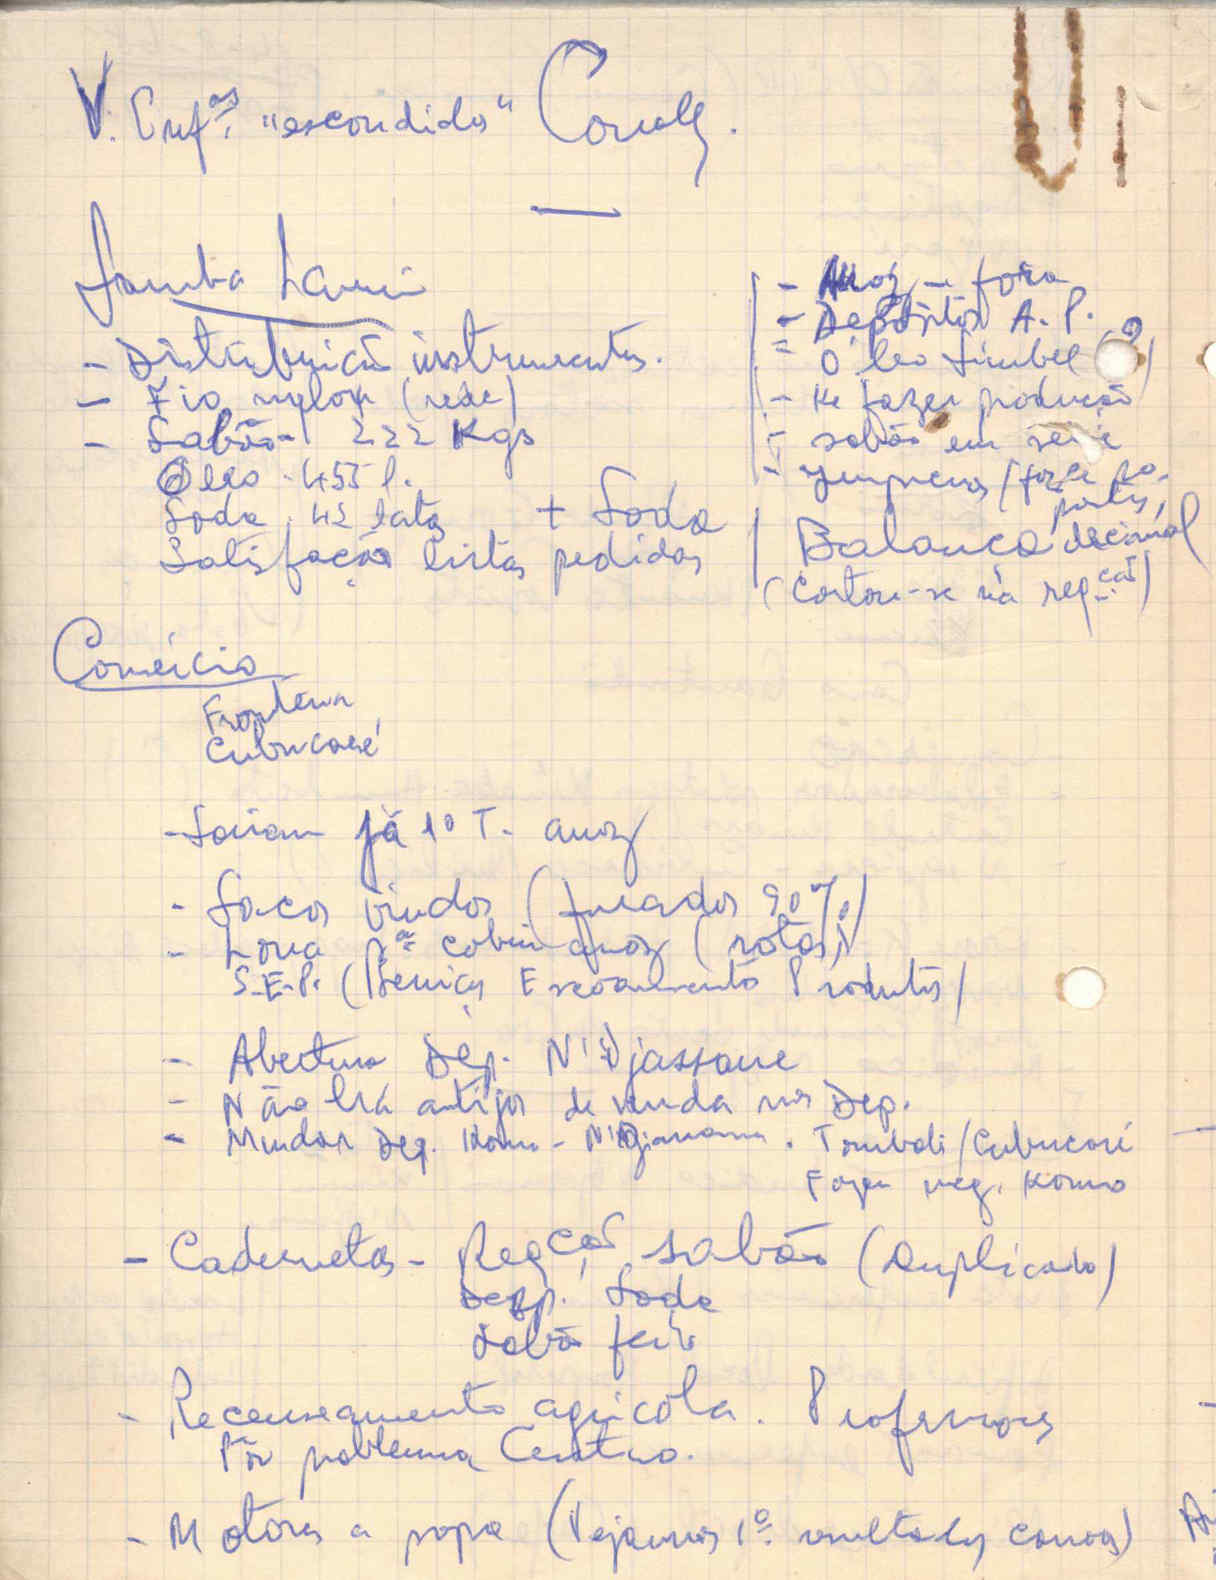 V. Enf.as "escondidos" Conak.
Samba Lami
- Distribuição instrumentos.
- Fio nylon (rede)
- Sabão - 222 Kgs
Óleo - 455 l.
Soda 42 latas + Soda
Satisfação listas pedidos
- Arroz - fora
- Depósitos A. P.
= Óleo (?)
- fazer produção
- sabão em
-
Balança decimal
(Cortou-se na reg.ção)
Comércio
Fronteira
Cubucaré
- Saíram já 10 T. arroz
- Sacos vindos (furados 90%)
- Lona p.a cobrir arroz (rota)
S.E.P. (Serviços Escoamento Produtos)
- Abertura Dep. N'Djassane
- Não há artigos de venda nos Dep.
- Mudar Dep. Komo - . Tombali/Cubucaré
Fazer neg. Komo
- Cadernetas - Reg.ção sabão (Duplicado)
Desp. Soda
Sabão feito
- Recenseamento agrícola. Professores
Pôr problema Centro.
- Motores a popa (Vejamos 1º resultados canoas)